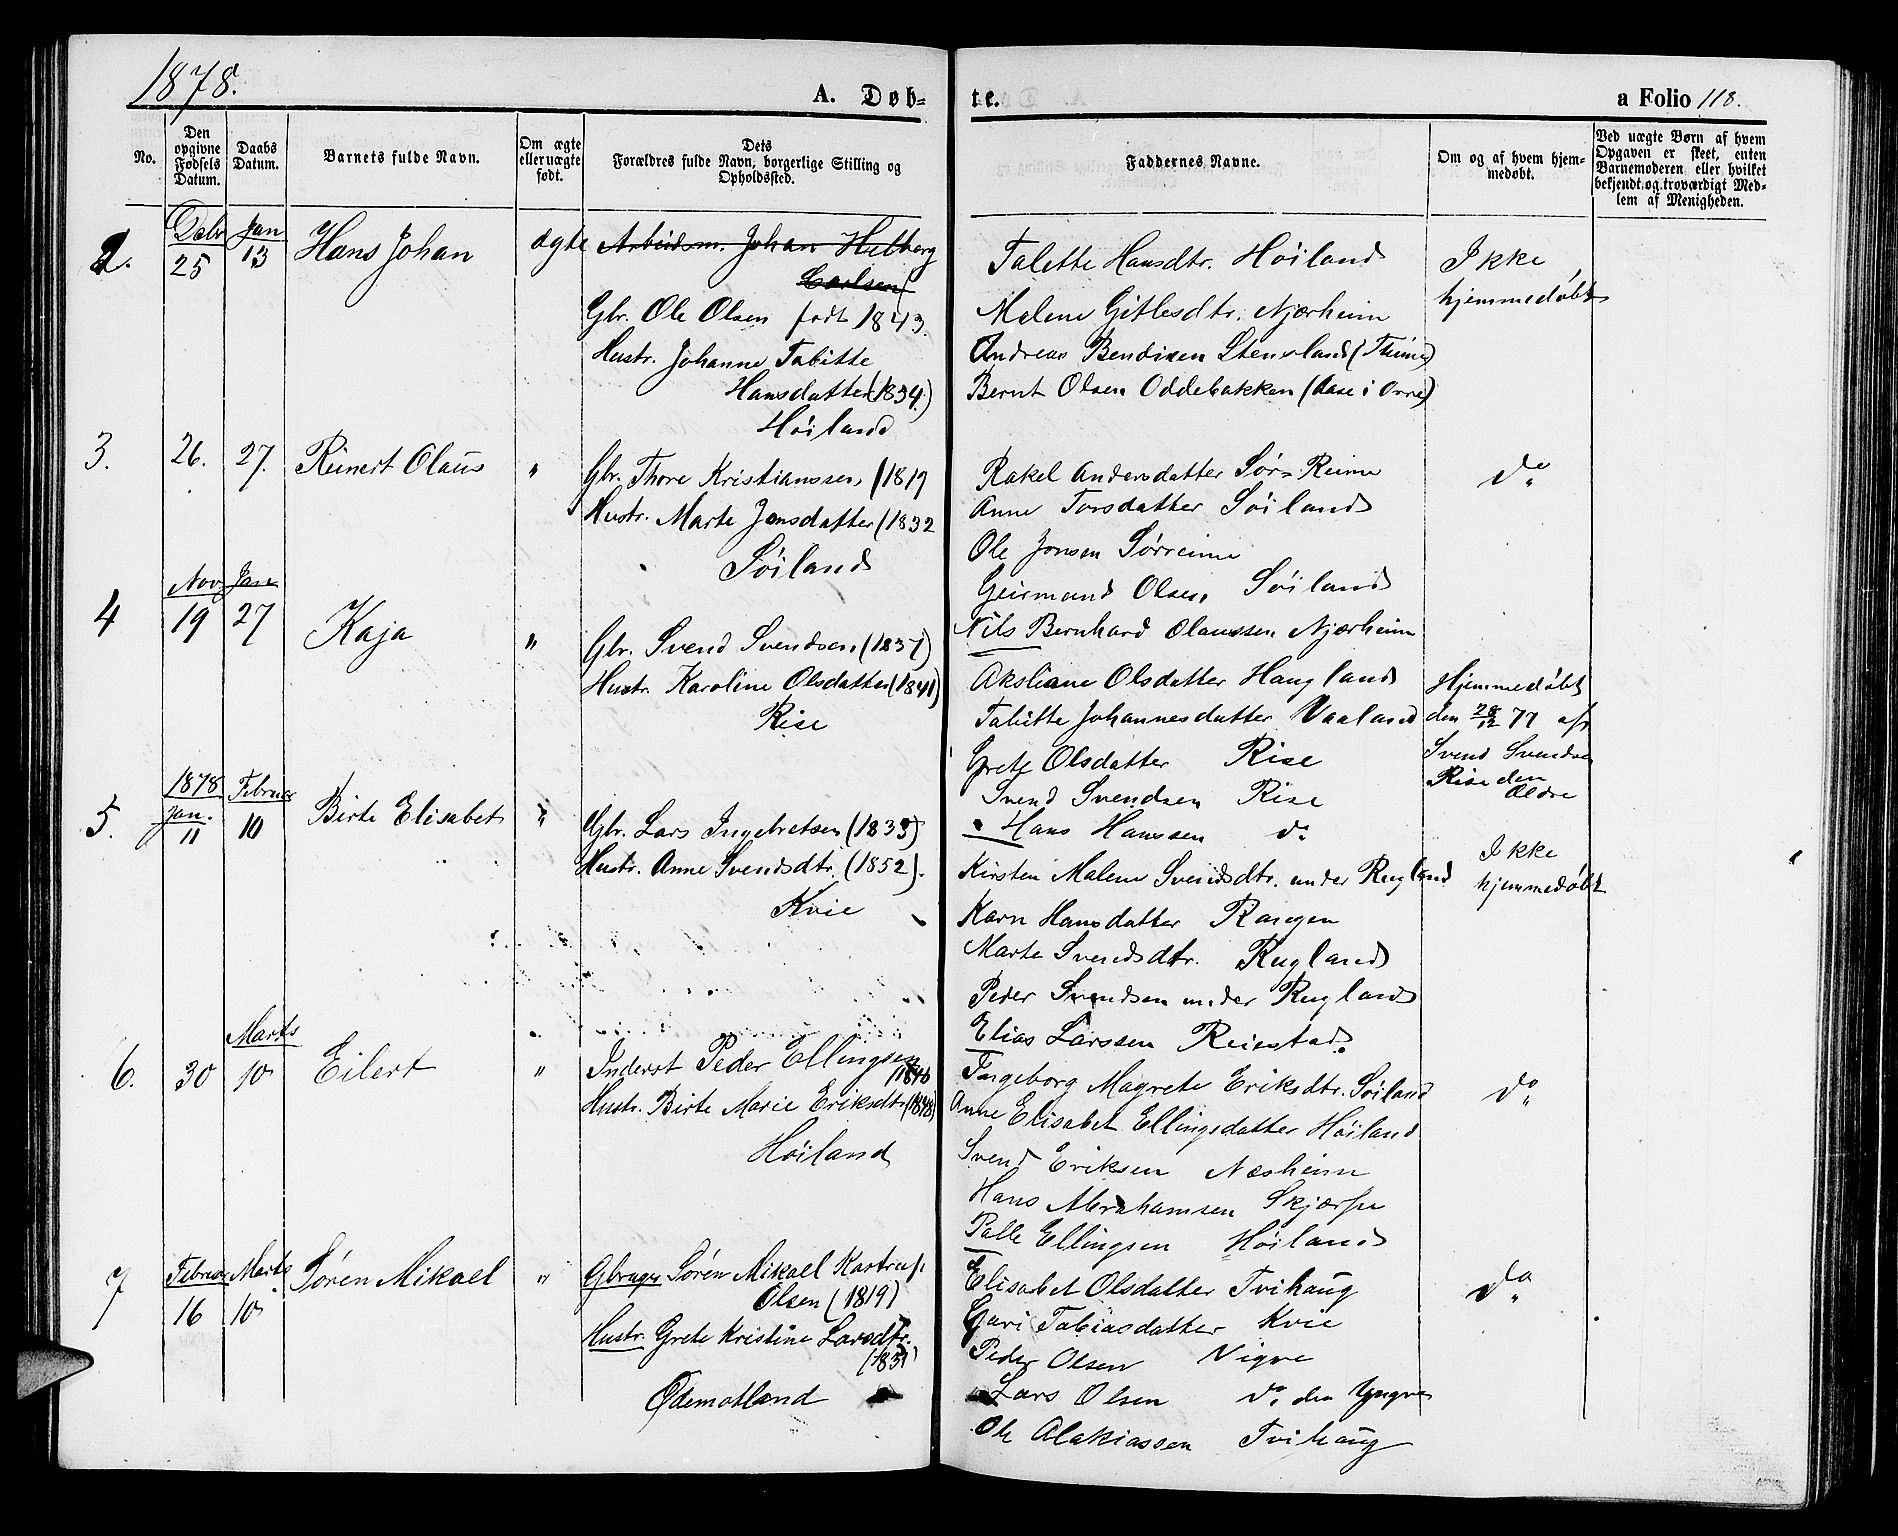 1878.
A. Døb-
te.
a Folio 118.
No.
Den opgivne Fødsels Datum.
Daabs Datum.
Barnets fulde Navn.
Om ægte eller uægte født.
Dets Forældres fulde Navn, borgerlige Stilling og Opholdssted.
Faddernes Navne.
Om og af hvem hjemmedøbt.
Ved uægte Børn af hvem Opgaven er skeet, enten Barnemoderen eller hvilket bekjendt og troværdigt Medlem af Menigheden.
2.
Decbr 25
Jan 13
Hans Johan
ægte
Arbeidsm. Johan Helberg
Carlsen
Gbr. Ole Olsen født 1843.
Hustr. Johanne Tabitte
Hansdatter (1834)
Höiland
Talette Hansdtr. Höiland
Malene Gitlesdtr. Njærheim
Andreas Bendixen Stensland (Thime)
Bernt Olsen Oddebakken (Aase i Orre)
Ikke
hjemmedøbt
3.
26.
27.
Reinert Olaus
"
Gbr. Thore Kristianssen (1819
Hustr. Marte Jonsdatter (1832
Söiland
Rakel Andersdatter Sör-Reime
Anne Torsdatter Söiland
Ole Jonsen Sörreime
Geirmand Olsen Söiland
Nils Bernhard Olaussen Njærheim
do.
4
Nov 19
Jan 27
Kaja
"
Gbr. Svend Svendsen (1837)
Hustr. Karoline Olsdatter (1841)
Rise
Aksliane Olsdatter Haugland
Tabitte Johannesdatter Vaaland
Grete Olsdatter Rise
Svend Svendsen Rise
Hans Hanssen do
Hjemmedøbt
den 28/12 77 af
Svend Svendsen
Rise den
Ældre
5.
1878 Jan. 11
Februar 10
Birte Elisabet
"
Gbr. Lars Ingebretsen (1833)
Hustr. Anne Svendsdtr. (1852).
Kvie
Kirsten Malene Svendsdtr. under Rugland
Karn Hansdatter Rangen
Marte Svendsdtr. Rugland
Peder Svendsen under Rugland
Elias Larssen Reiestad.
Ikke
hjemmedøbt
6.
30
Marts 10
Eilert
"
Inderst Peder Ellingsen
1846
Hustr. Birte Marie Eriksdtr (1848)
Höiland
Ingeborg Magrete Eriksdtr. Söiland
Anne Elisabet Ellingsdatter Höiland
Svend Eriksen Næsheim
Hans Abrahamsen Skjærpe
Palle Ellingsen Höiland
do.
7
Februar 16
Marts 10
Sören Mikael
"
Gbruger Sören Mikael Kastrup
Olsen (1819)
Hustr. Grete Kristine Larsdtr.
Ødemotland
Elisabet Olsdatter Tvihaug
Gari Tabiasdatter Kvie
Peder Olsen Vigre
Lars Olsen do. den Yngre
Ole Alakiassen Tvihaug
do.